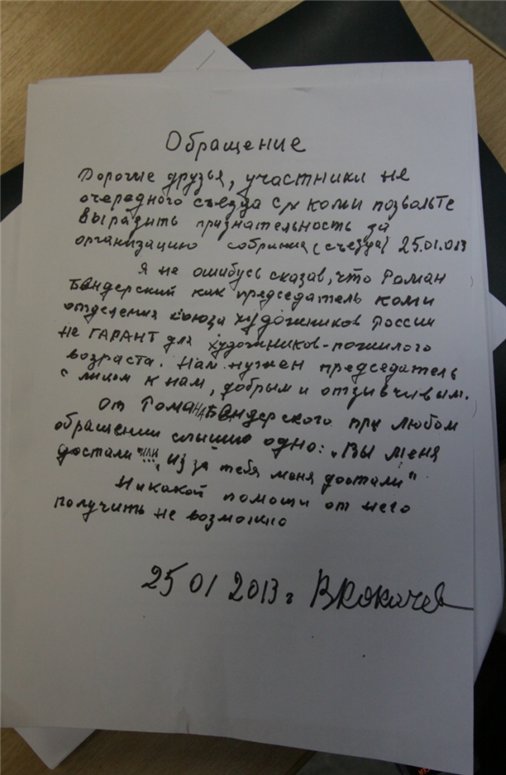 Обращение
Дорогие друзья, участники не
очередного съезда СХ Коми позвольте
выразить признательность за
организацию собрания (съезда) 25.01.013
Я не ошибусь сказав, что Роман
Бендерский как председатель Коми
отделения союза художников России
не ГАРАНТ для художников-пожилого
возраста. Нам нужен председатель
с лицом к нам, добрым и отзывчивым.
От Романа Бендерского при любом
обращении слышно одно: „Вы меня
достали" или „Из за тебя меня достали"
Никакой помощи от него
получить не возможно
25 01 2013 г ВКокачев